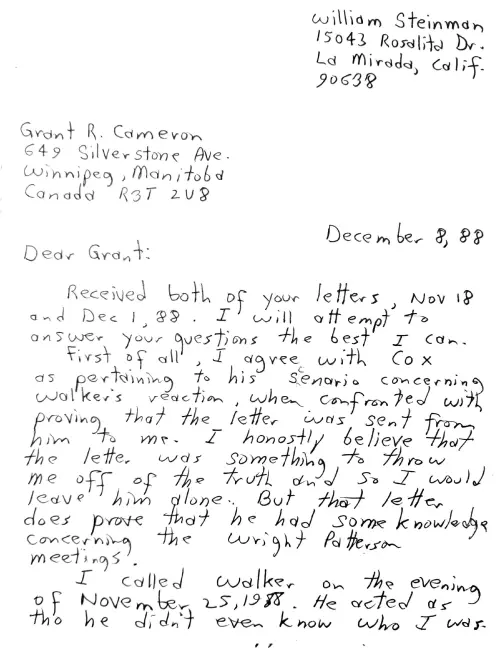 William Steinman
15043 Rosalita Dr.
La Mirada, Calif.
90638
Grant R. Cameron
649 Silverstone Ave.
Winnipeg, Manitoba
Canada R3T 2V8
December 8, 88
Dear Grant:
Received both of your letters, Nov 18
and Dec 1, 88. I will attempt to
answer your questions the best I can.
First of all, I agree with Cox
as pertaining to his Scenario concerning
Walker's reaction, when confronted with
proving that the letter was sent from
him to me. I honostly believe that
the letter was something to throw
me off of the truth and so I would
leave him alone. But that letter
does prove that he had some knowledge
concerning the Wright Patterson
meetings.
I called Walker on the evening
of November 25, 1988. He acted as
tho he didn't even know who I was.